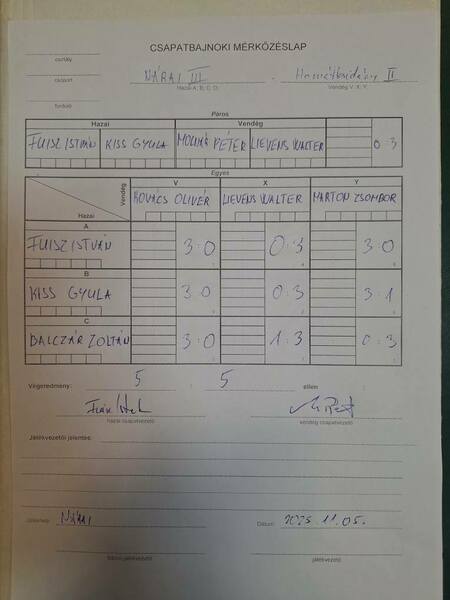 CSAPATBAJNOKI MÉRKŐZÉSLAP
osztály
NÁRAI III - II
csoport Hazai A; B; C; D; Vendég V; X; Y;
forduló
Páros
Hazai Vendég
FUISZ ISTVÁN KISS GYULA MOLNÁR PÉTER LIEVENS WALTER 0:3
Egyes
Vendég V X Y
Hazai KOVÁCS OLIVÉR LIEVENS WALTER MARTON ZSOMBOR
A
FUISZ ISTVÁN 3:0 0:3 3:0
B
KISS GYULA 3:0 0:3 3:1
C
BALCZÁR ZOLTÁN 3:0 1:3 0:3
Végeredmény: 5 : 5 ellen
hazai csapatvezető vendég csapatvezető
Játékvezetői jelentés:
NÁRAI Dátum: 2025.11.05.
játékvezető